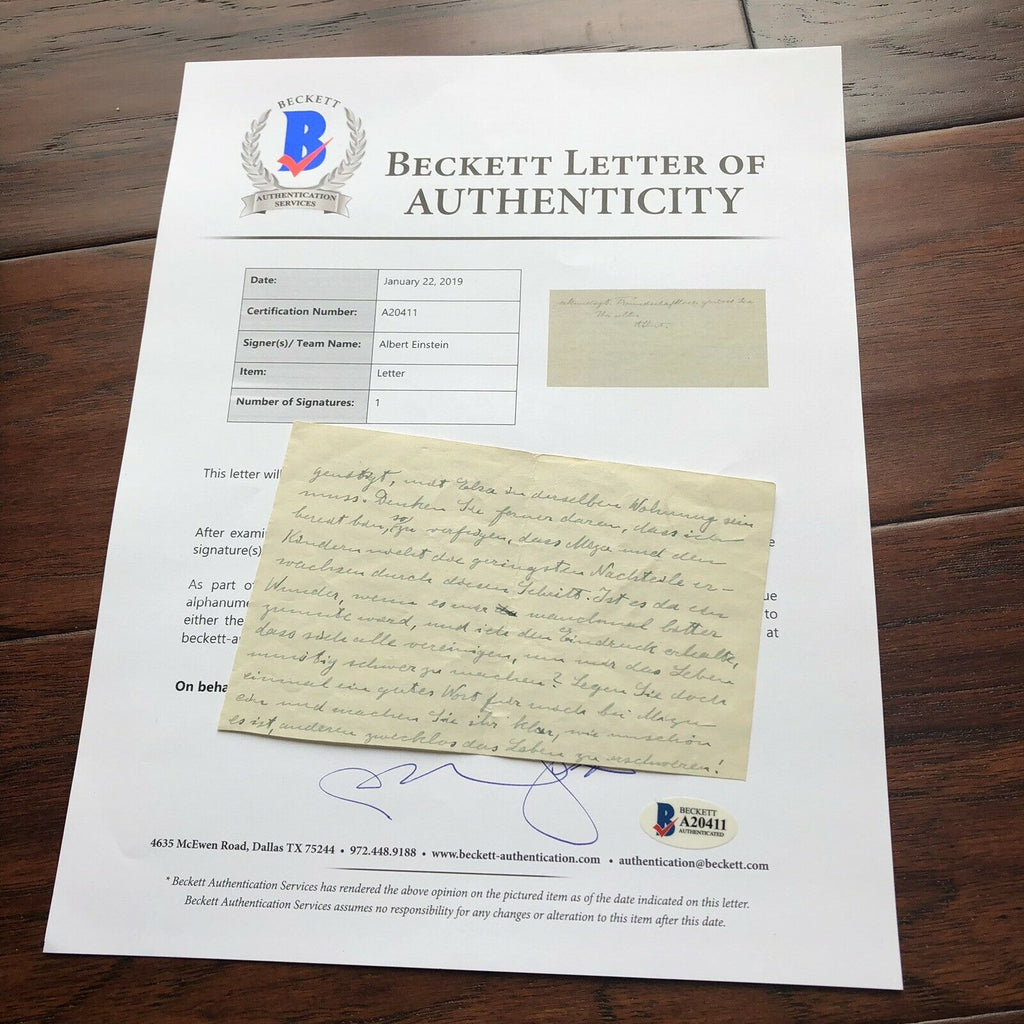 BECKETT
B
AUTHENTICATION
SERVICES
BECKETT LETTER OF
AUTHENTICITY
Date: January 22, 2019
Certification Number: A20411
Signer(s)/ Team Name: Albert Einstein
Item: Letter
Number of Signatures: 1
Albert.
This letter will
After exami
signature(s)
As part of ue
alphanume to
either the at
beckett-a
On beha
genötigt, mit Elsa in derselben Wohnung sein
muss. Denken Sie ferner daran, dass ich
bereit bin, so zu verfügen, dass Miza und den
Kindern nicht die geringsten Nachteile er-
wachsen durch diesen Schritt. Ist es da ein
Wunder, wenn es mir manchmal bitter
zumute wird, und ich den Eindruck erhalte,
dass sich alle vereinigen, um mir das Leben
unnötig schwer zu machen? Legen Sie doch
einmal ein gutes Wort für mich bei Miza
ein und machen Sie ihr klar, wie unschön
es ist, anderen zwecklos das Leben zu erschweren!
B
BECKETT
A20411
AUTHENTICATED
4635 McEwen Road, Dallas TX 75244 • 972.448.9188 • www.beckett-authentication.com • authentication@beckett.com
* Beckett Authentication Services has rendered the above opinion on the pictured item as of the date indicated on this letter.
Beckett Authentication Services assumes no responsibility for any changes or alteration to this item after this date.